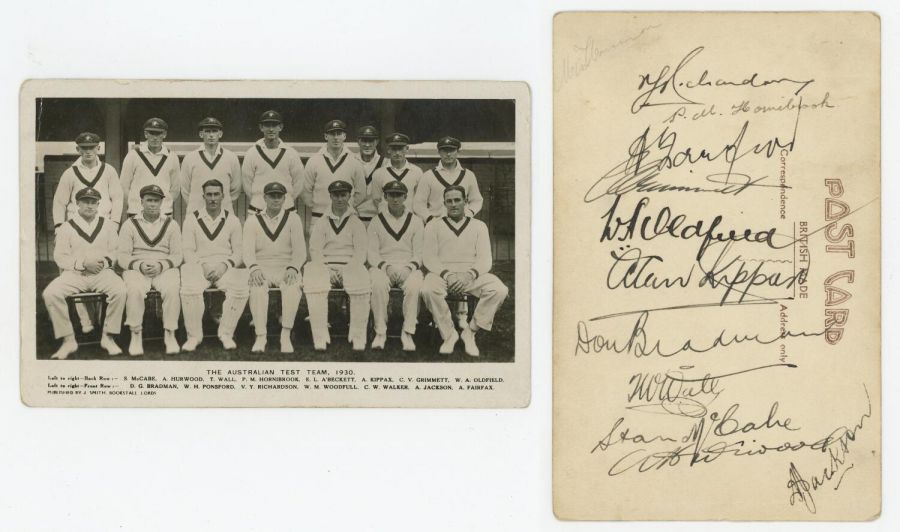 THE AUSTRALIAN TEST TEAM, 1930.
Left to right—Back Row:— S. McCABE, A. HURWOOD, T. WALL, P. M. HORNIBROOK, E. L. A'BECKETT, A. KIPPAX, C. V. GRIMMETT, W. A. OLDFIELD.
Left to right—Front Row:— D. G. BRADMAN, W. H. PONSFORD, V. Y. RICHARDSON, W. M. WOODFULL, C. W. WALKER, A. JACKSON, A. FAIRFAX.
PUBLISHED BY J. SMITH, BOOKSTALL LORDS
V Y Richardson
P. M. Hornibrook
Grimmett
W A Oldfield
Alan Kippax
Don Bradman
T W Wall
Stan McCabe
A Hurwood
A Jackson
POST CARD
BRITISH MADE
Correspondence
Address only